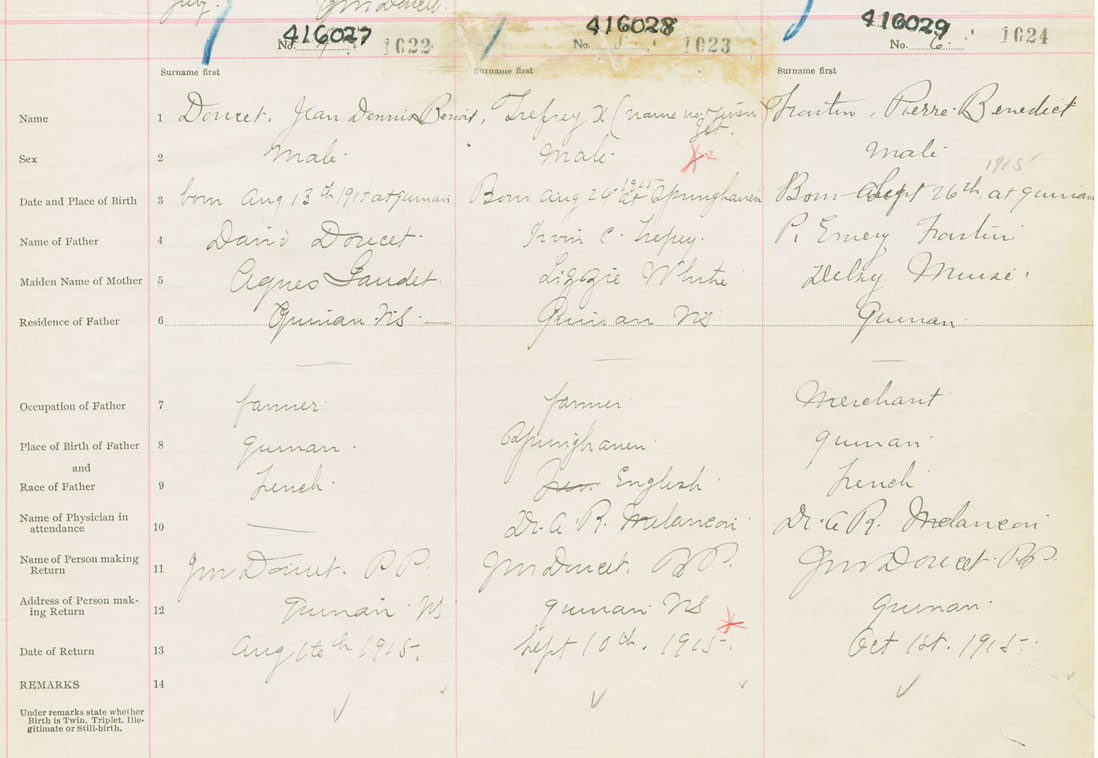 July.
416027 416028 416029
No. 1622 No. 5 1623 No. 6 1624
Surname first Surname first Surname first
Name 1 Doucet, Jean Dennis Benoit, Trefrey X (name not given yet. Frontin, Pierre Benedict
Sex 2 Male Male Male
Date and Place of Birth 3 born Aug 13th 1915 at Quinan Born Aug 24 1915 at Springhaven Born Sept 26th 1915 at Quinan
Name of Father 4 David Doucet. Irvin C. Trefrey. P. Emery Frontin
Maiden Name of Mother 5 Agnes Gaudet. Lizzie White Delsy Muise.
Residence of Father 6 Quinan NS — Quinan NS Quinan
Occupation of Father 7 farmer farmer Merchant
Place of Birth of Father 8 Quinan. Springhaven Quinan
and
Race of Father 9 French. English French
Name of Physician in
attendance 10 — Dr. A R. Melancon Dr. A R. Melancon
Name of Person making
Return 11 Doucet. P.P. Doucet. P.P. Doucet P.P.
Address of Person mak-
ing Return 12 Quinan NS Quinan NS Quinan
Date of Return 13 Aug 1915. Sept 10th. 1915. Oct 1st. 1915.
REMARKS 14
Under remarks state whether
Birth is Twin, Triplet, Ille-
gitimate or Still-birth.